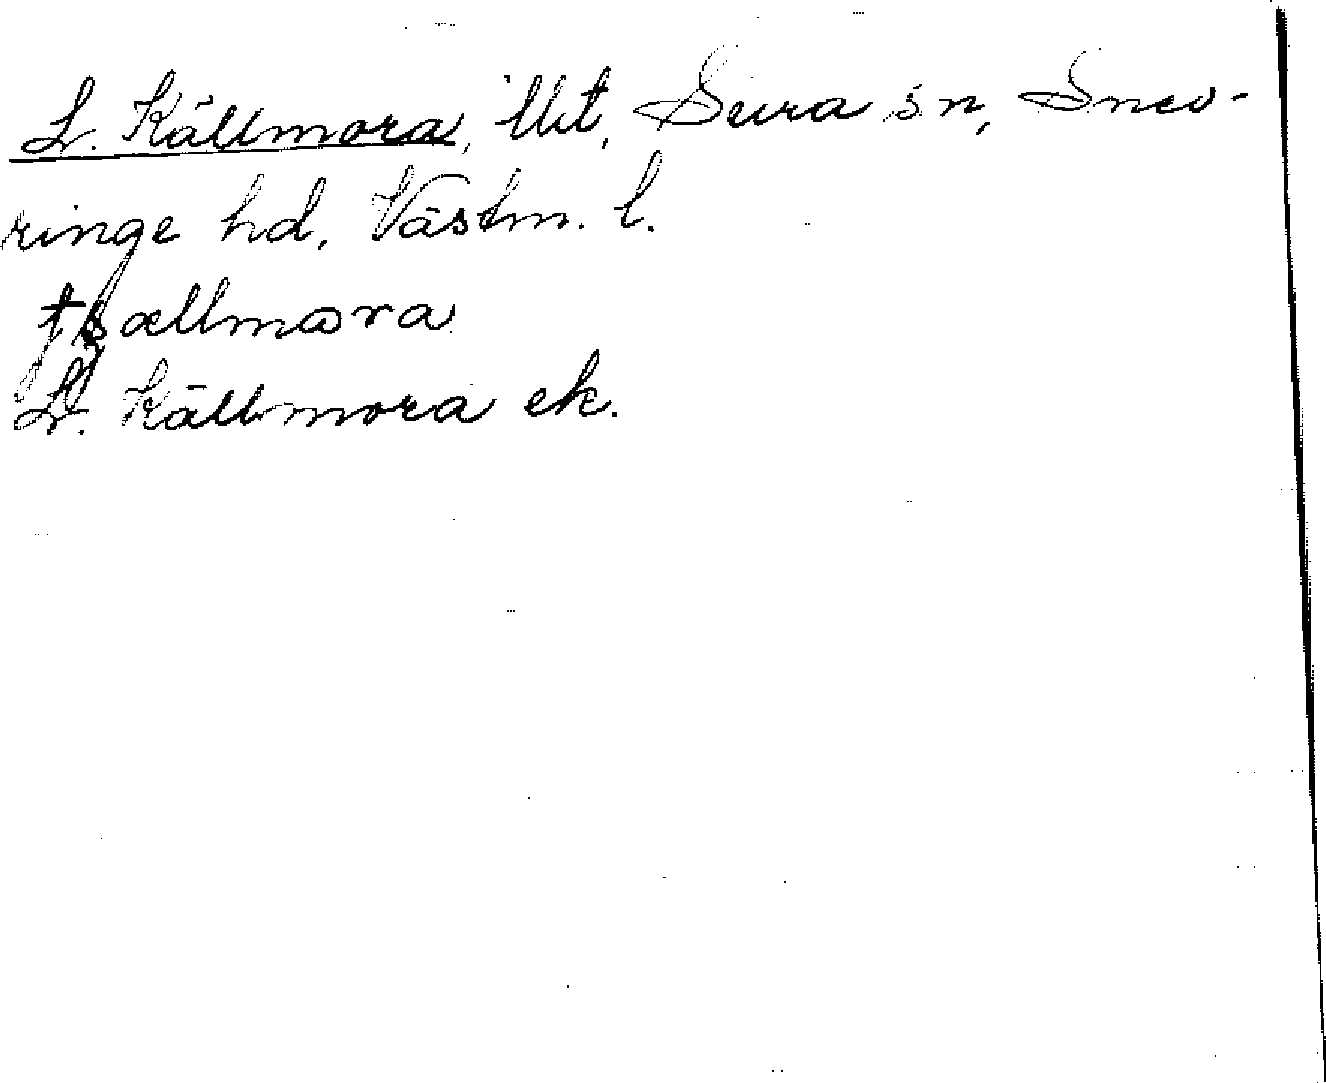 L. Källmora, Utt, Sura sn, Snev-
ringe hd, Västm. l.
tsællmora
L. Källmora ek.